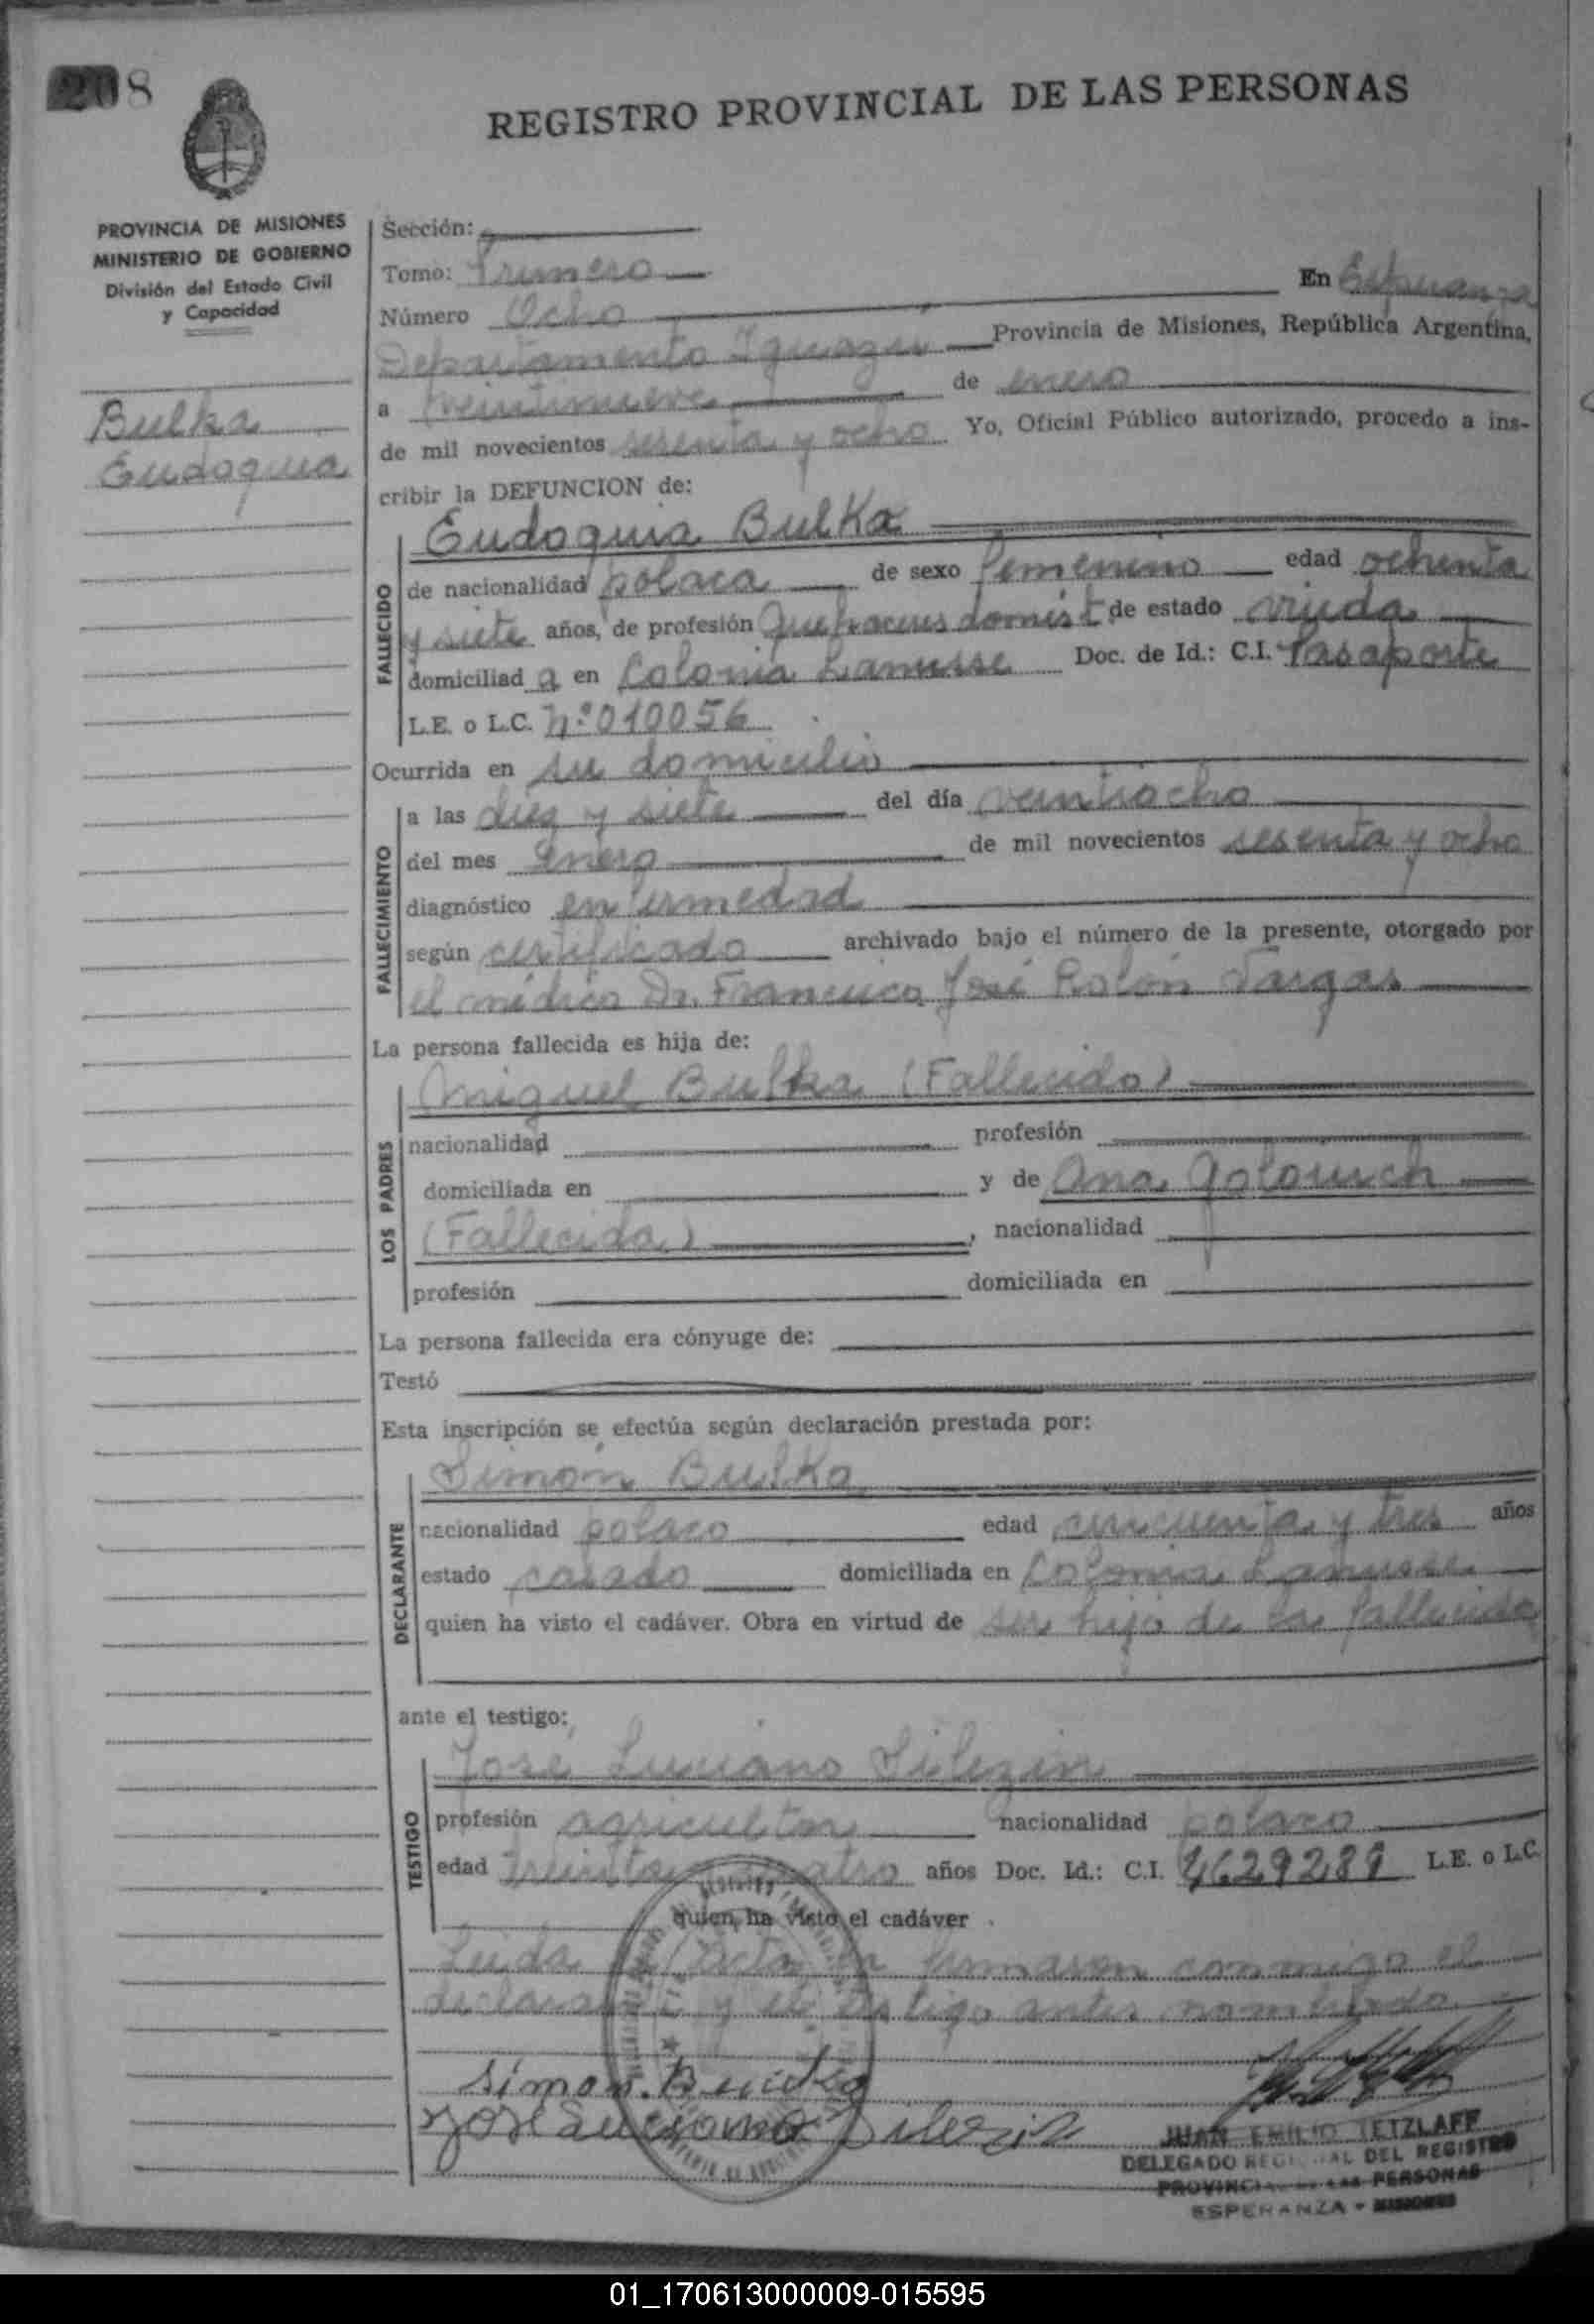 208
REGISTRO PROVINCIAL DE LAS PERSONAS
PROVINCIA DE MISIONES
MINISTERIO DE GOBIERNO
División del Estado Civil
y Capacidad
Bulka
Eudoquia
Sección:
Tomo: Primero
Número Ocho En Esperanza
Departamento Iguazú Provincia de Misiones, República Argentina,
a veintinueve de enero
de mil novecientos sesenta y ocho Yo, Oficial Público autorizado, procedo a ins-
cribir la DEFUNCION de:
FALLECIDO
Eudoquia Bulka
de nacionalidad polaca de sexo femenino edad ochenta
y siete años, de profesión Quehaceres domést de estado viuda
domiciliad a en Colonia Lanusse Doc. de Id.: C.I. Pasaporte
L.E. o L.C. Nº 010056
Ocurrida en su domicilio
FALLECIMIENTO
a las diez y siete del día veintiocho
del mes Enero de mil novecientos sesenta y ocho
diagnóstico enfermedad
según certificado archivado bajo el número de la presente, otorgado por
el médico Dr. Francisco José Rolón Vargas
La persona fallecida es hija de:
LOS PADRES
Miguel Bulka (Fallecido)
nacionalidad profesión
domiciliada en y de Ana Golowich
(Fallecida), nacionalidad
profesión domiciliada en
La persona fallecida era cónyuge de:
Testó
Esta inscripción se efectúa según declaración prestada por:
DECLARANTE
Simón Bulka
nacionalidad polaco edad cincuenta y tres años
estado casado domiciliada en Colonia Lanusse
quien ha visto el cadáver. Obra en virtud de ser hijo de la fallecida
ante el testigo:
TESTIGO
José Luciano Silezin
profesión agricultor nacionalidad polaco
edad treinta y cuatro años Doc. Id.: C.I. 4629289 L.E. o L.C.
quien ha visto el cadáver
Leida el Acta la firmaron conmigo el
declarante y el testigo antes nombrado
Simon
José Luciano
JUAN EMILIO TETZLAFF
DELEGADO REGIONAL DEL REGISTRO
PROVINCIAL DE LAS PERSONAS
ESPERANZA - MISIONES
01_170613000009-015595